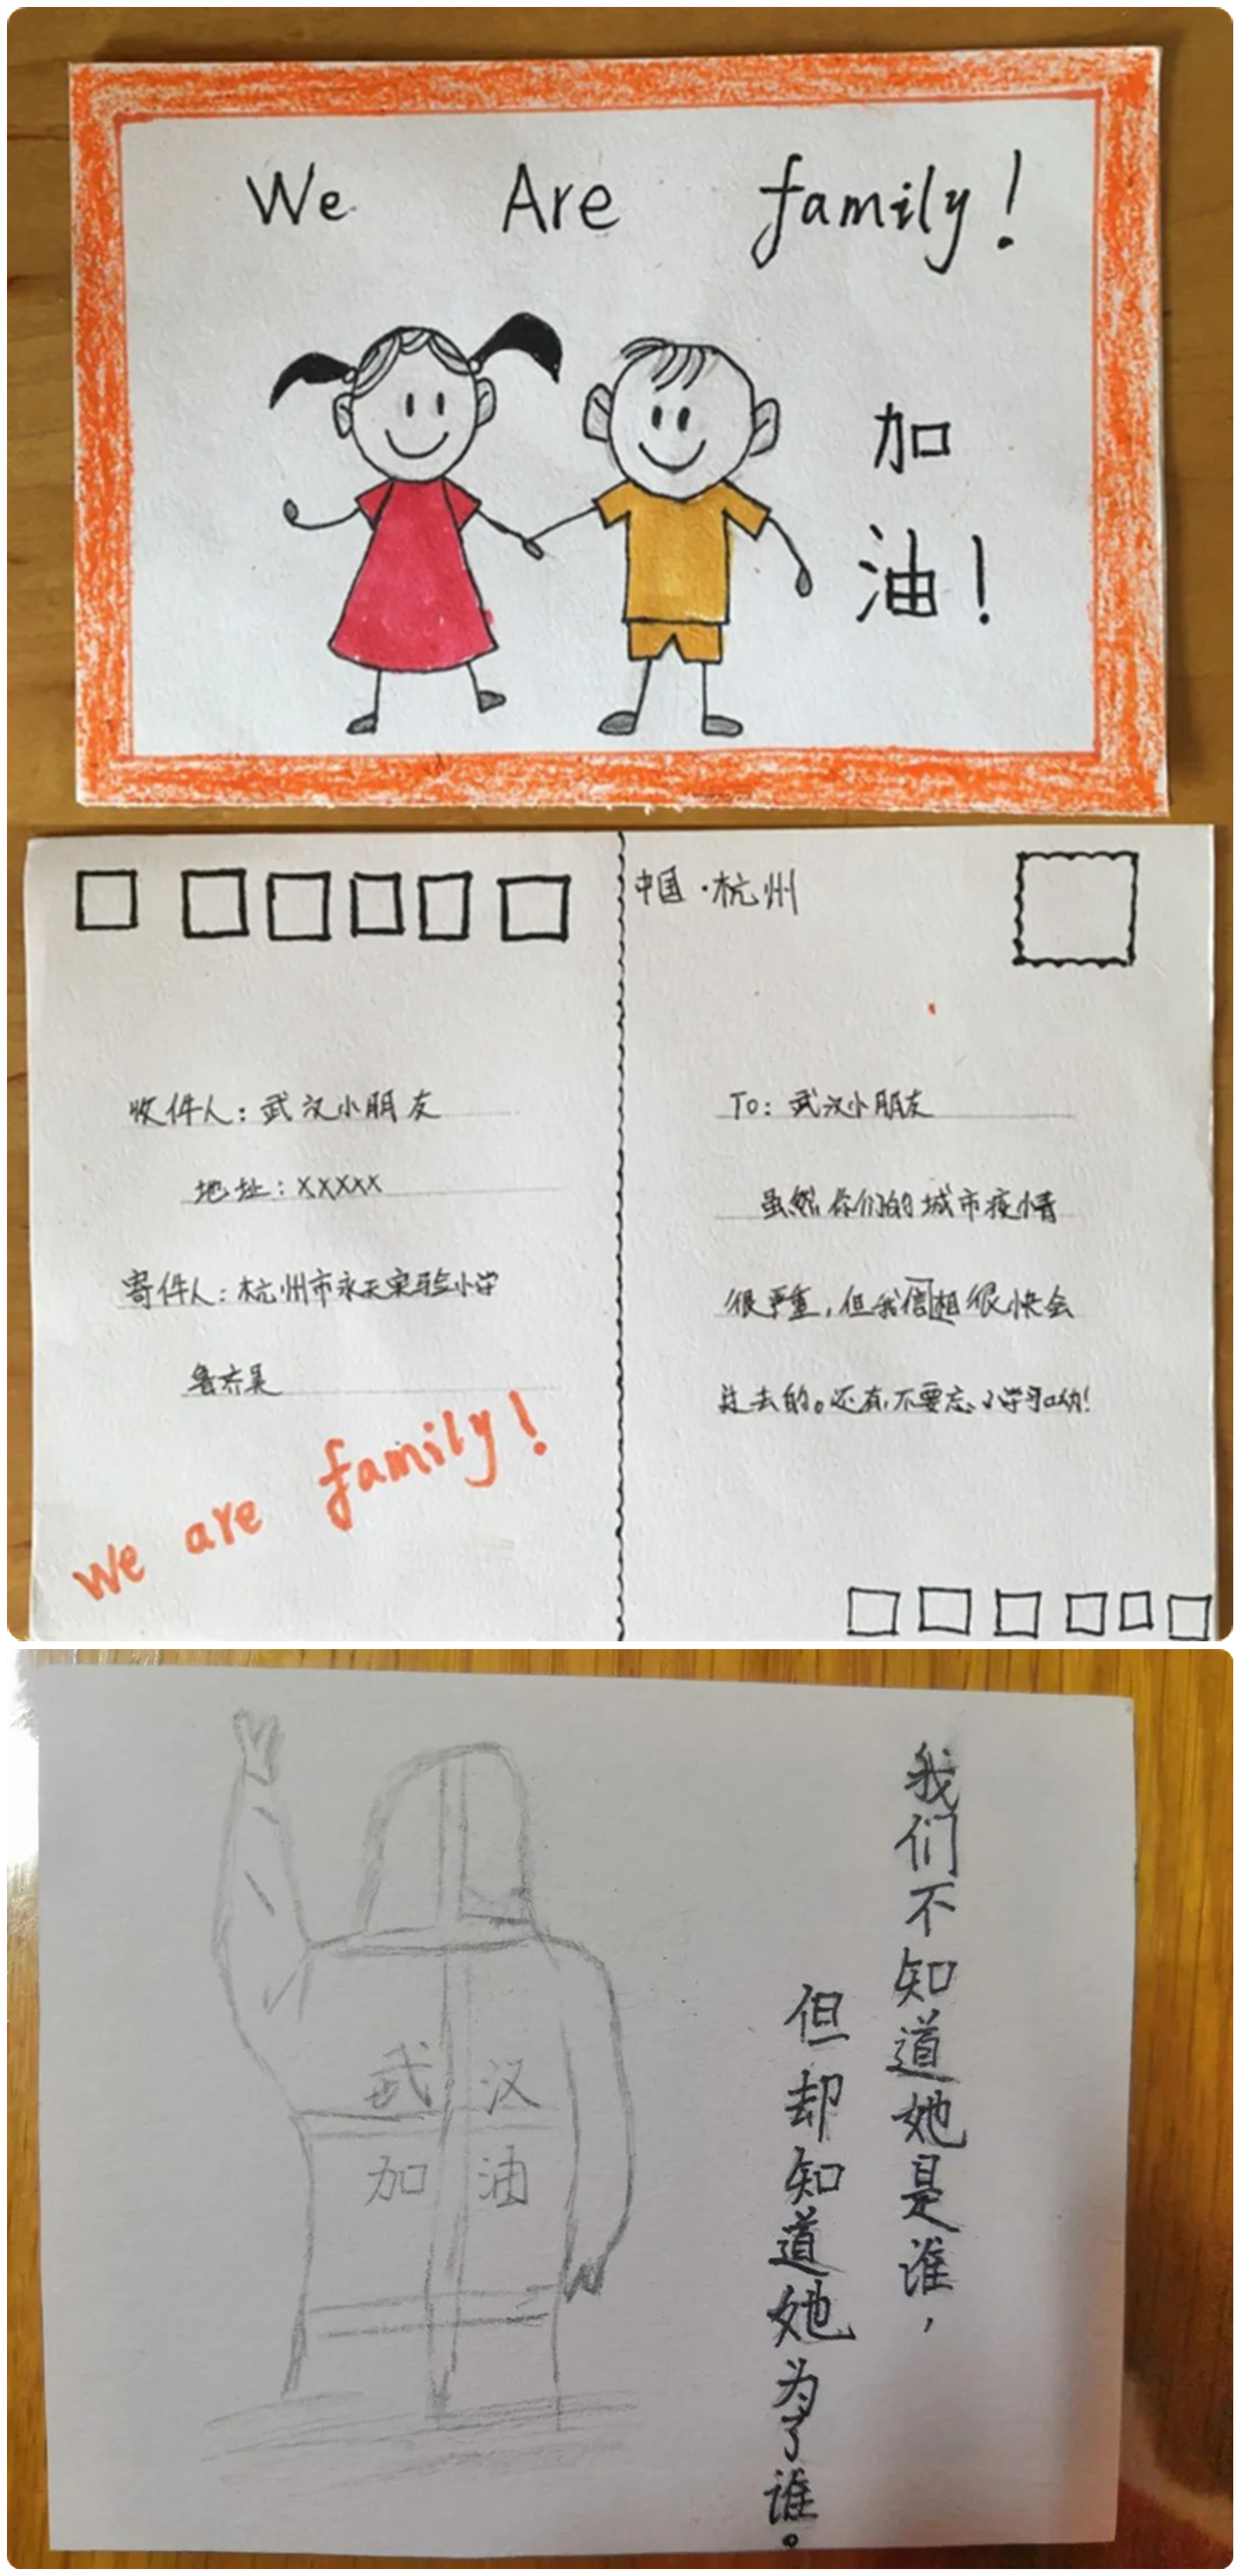 We Are family!
加
油！
收件人：武汉小朋友
地址：XXXXX
寄件人：杭州市永天实验小学
We are family!
中国·杭州
To：武汉小朋友
虽然你们的城市疫情
很严重，但我信相很快会
过去的。还有，不要忘了学习呦！
武汉
加油
我们不知道她是谁，
但却知道她为了谁。